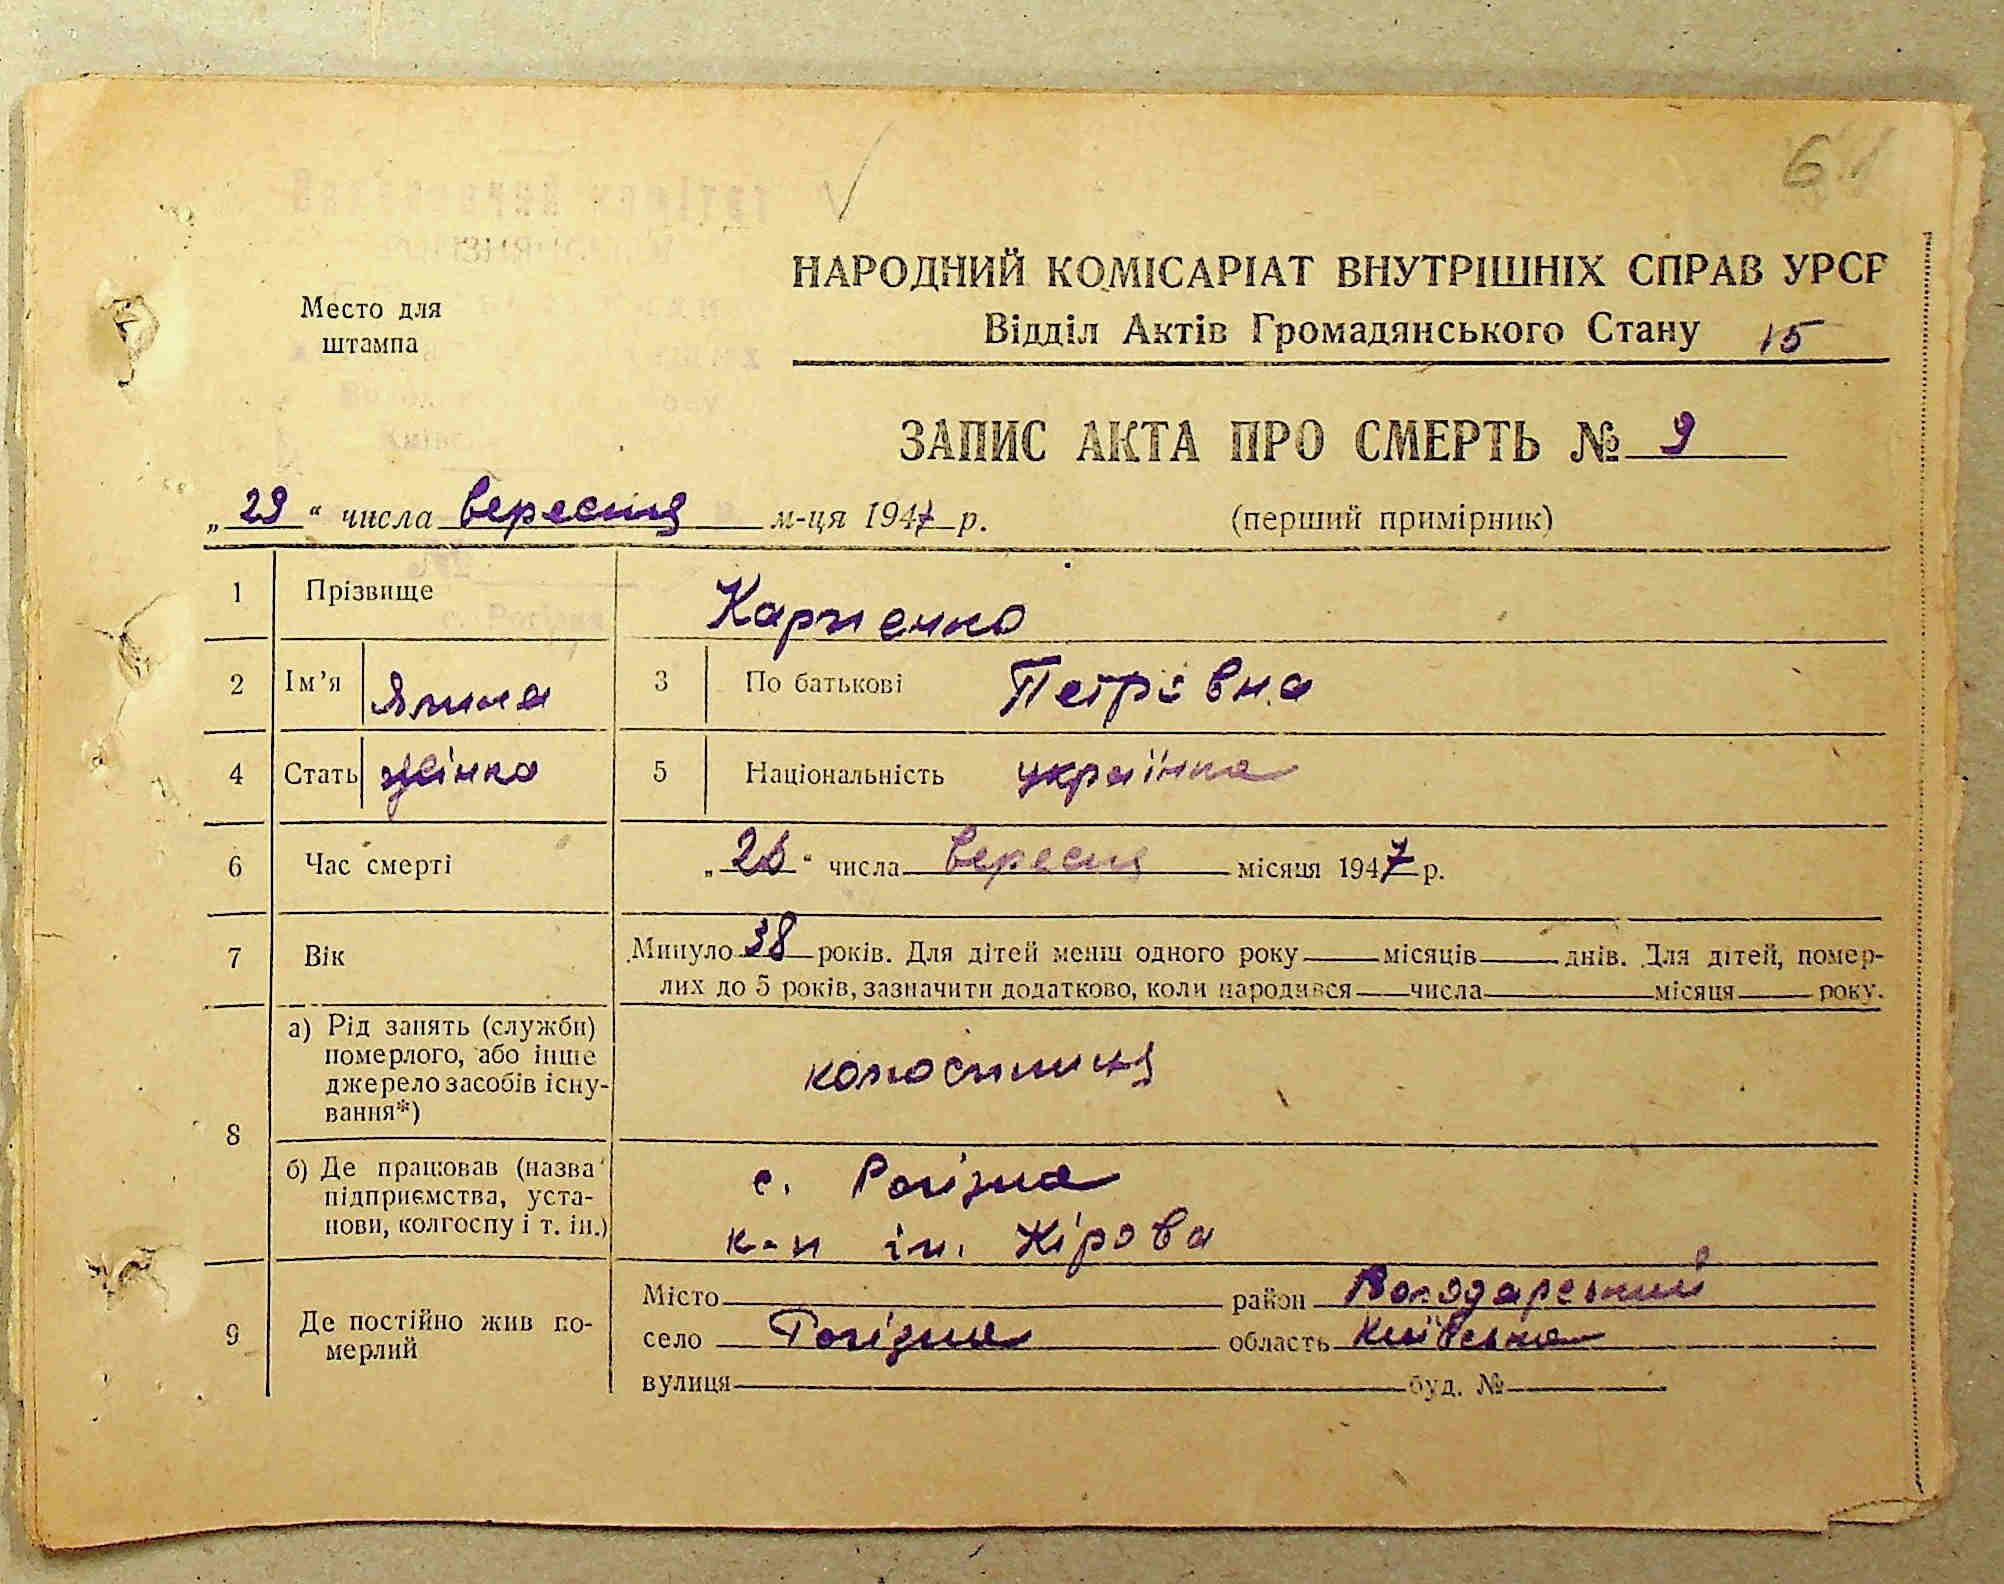 61
НАРОДНИЙ КОМІСАРІАТ ВНУТРІШНІХ СПРАВ УРСР
Место для штампа
Відділ Актів Громадянського Стану 15
ЗАПИС АКТА ПРО СМЕРТЬ № 9
„29“ числа вересня м-ця 1947 р. (перший примірник)
1 Прізвище Карпенко
2 Ім’я Ялина 3 По батькові Петрівна
4 Стать жінка 5 Національність українка
6 Час смерті „28“ числа вересня місяця 1947 р.
7 Вік Минуло 38 років. Для дітей менш одного року місяців днів. Для дітей, помер-
лих до 5 років, зазначити додатково, коли народився числа місяця року.
8 а) Рід занять (служби)
померлого, або інше
джерело засобів існу-
вання*)
колгоспниця
б) Де працював (назва
підприємства, уста-
нови, колгоспу і т. ін.)
с. Рогізна
к-п ім. Кірова
9 Де постійно жив по-
мерлий
Місто район Володарський
село Рогізна область Київська
вулиця буд. №